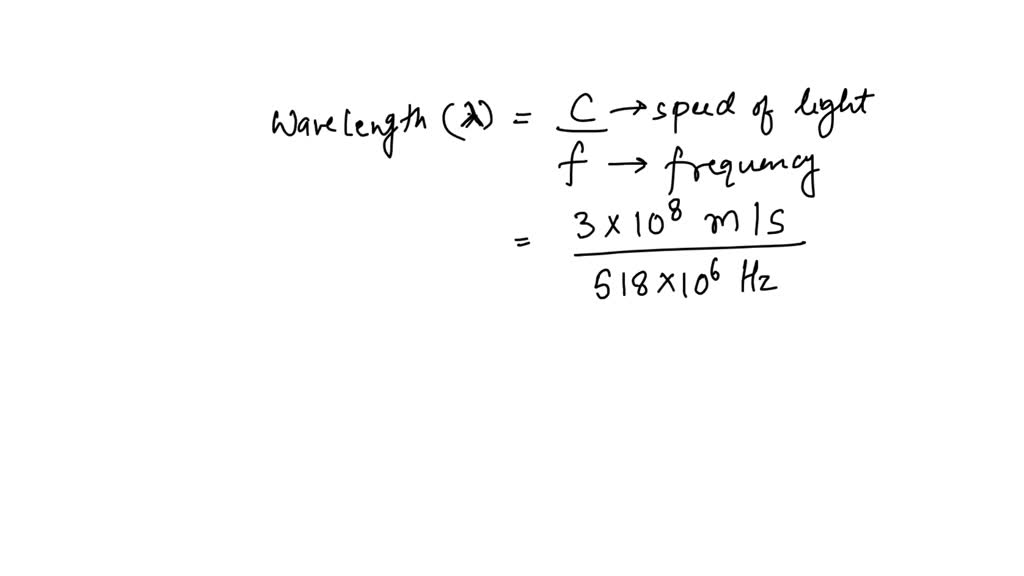 Wavelength (λ) = C → speed of light
f → frequency
= 3 × 10⁸ m/s
518 × 10⁶ Hz